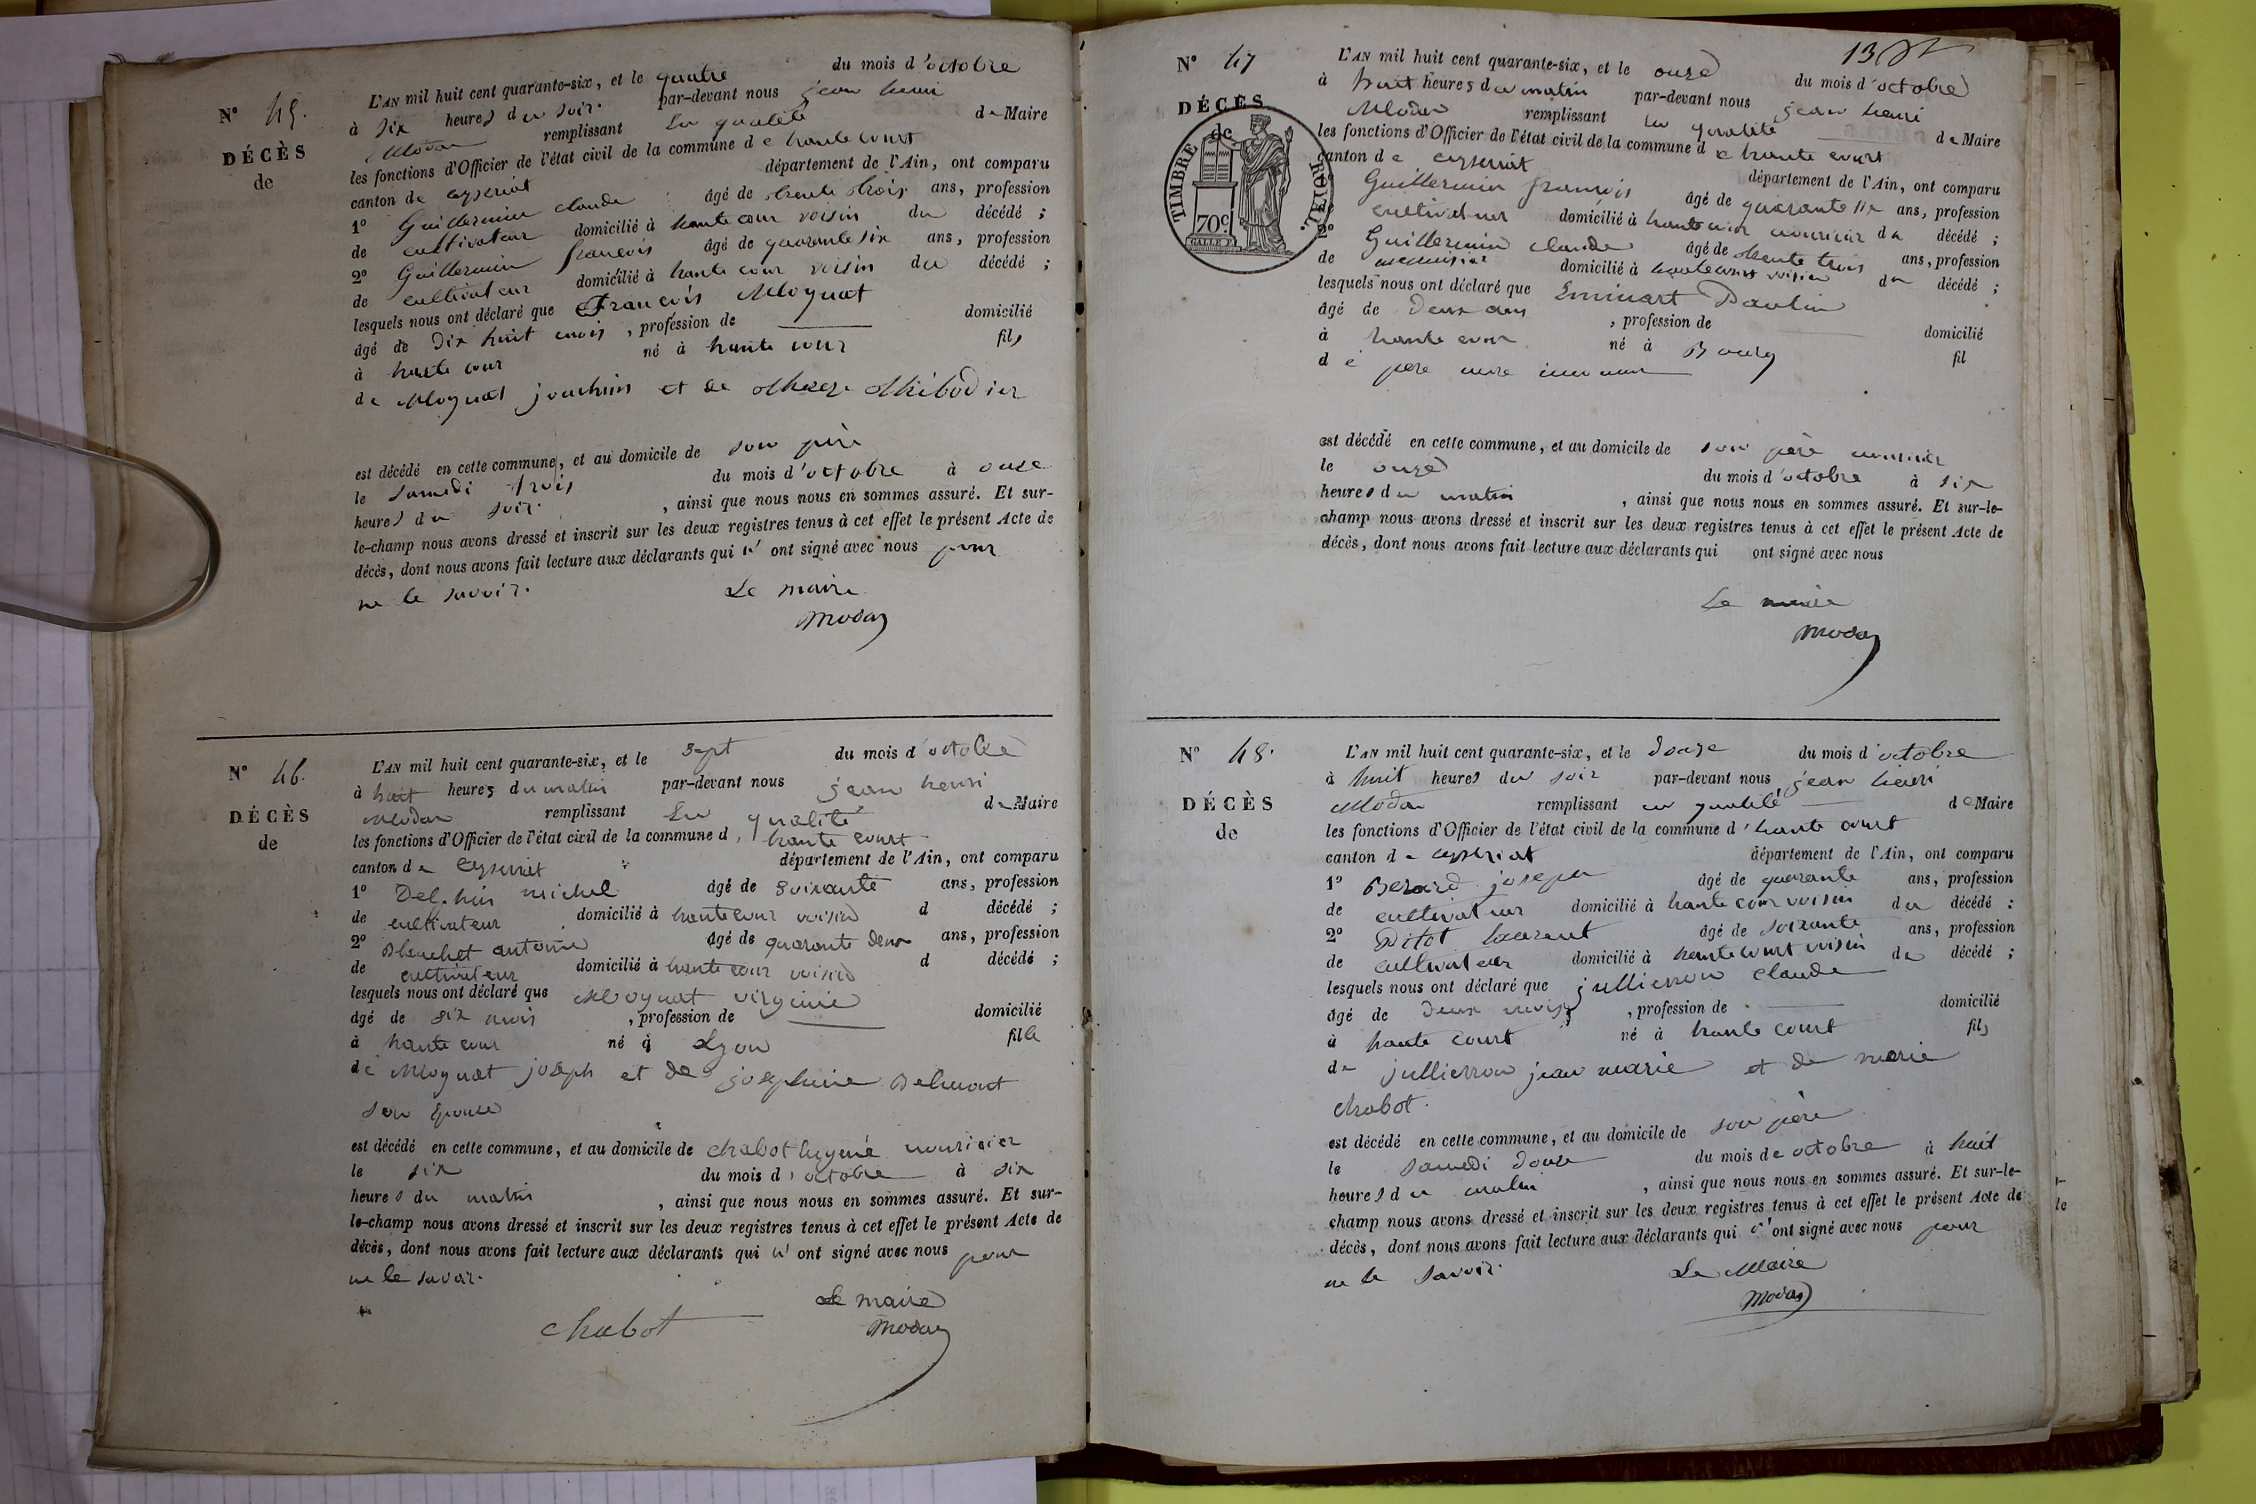 N° 45.
DÉCÈS
de
L'AN mil huit cent quarante-six, et le quatre du mois d'octobre
à six heures du soir. par-devant nous jean henri
Modas remplissant en qualité de Maire
les fonctions d'Officier de l'état civil de la commune de haute court
canton de ceyseriat département de l'Ain, ont comparu
1° Guillermin claude âgé de trente trois ans, profession
de cultivateur domicilié à haute cour voisin du décédé ;
2° Guillermin françois âgé de quarante six ans, profession
de cultivateur domicilié à haute cour voisin du décédé ;
lesquels nous ont déclaré que François Moquat
âgé de dix huit mois , profession de domicilié
à haute cour né à haute cour fils
de Moquat joachim et de
est décédé en cette commune, et au domicile de son père
le samedi trois du mois d'octobre à onze
heures du soir. , ainsi que nous nous en sommes assuré. Et sur-
le-champ nous avons dressé et inscrit sur les deux registres tenus à cet effet le présent Acte de
décès, dont nous avons fait lecture aux déclarants qui n'ont signé avec nous pour
ne le savoir.
Le maire
Modas
N° 46.
DÉCÈS
de
L'AN mil huit cent quarante-six, et le sept du mois d'octobre
à huit heures du matin par-devant nous jean henri
Modas remplissant En qualité de Maire
les fonctions d'Officier de l'état civil de la commune d haute court
canton de Ceyseriat département de l'Ain, ont comparu
1° Delphin michel âgé de soixante ans, profession
de cultivateur domicilié à haute cour voisin d décédé ;
2° Blanchet antoine âgé de quarante deux ans, profession
de cultivateur domicilié à haute cour voisin d décédé ;
lesquels nous ont déclaré que Moquat virginie
âgé de six mois , profession de domicilié
à haute cour né à Lyon fille
de Moquat joseph et de josephine Delmont
son épouse
est décédé en cette commune, et au domicile de chabot nouricier
le six du mois d'octobre à six
heures du matin , ainsi que nous nous en sommes assuré. Et sur-
le-champ nous avons dressé et inscrit sur les deux registres tenus à cet effet le présent Acte de
décès, dont nous avons fait lecture aux déclarants qui n'ont signé avec nous pour
ne le savoir.
Le maire
chabot Modas
13
N° 47
DÉCÈS
de
TIMBRE ROYAL.
70c
L'AN mil huit cent quarante-six, et le onze du mois d'octobre
à huit heures du matin par-devant nous jean henri
Modas remplissant en qualité de Maire
les fonctions d'Officier de l'état civil de la commune de haute court
canton de ceyseriat département de l'Ain, ont comparu
1° Guillermin françois âgé de quarante six ans, profession
cultivateur domicilié à haute cour nouricier du décédé ;
2° Guillermin claude âgé de trente trois ans, profession
de menuisier domicilié à haute cour voisin du décédé ;
lesquels nous ont déclaré que Paulin
âgé de deux ans , profession de domicilié
à haute cour né à Bourg fil
de père mère inconnu
est décédé en cette commune, et au domicile de son père nouricier
le onze du mois d'octobre à six
heures du matin , ainsi que nous nous en sommes assuré. Et sur-le-
champ nous avons dressé et inscrit sur les deux registres tenus à cet effet le présent Acte de
décès, dont nous avons fait lecture aux déclarants qui ont signé avec nous
Le maire
Modas
N° 48.
DÉCÈS
de
L'AN mil huit cent quarante-six, et le douze du mois d'octobre
à huit heures du soir par-devant nous jean henri
Modas remplissant en qualité de Maire
les fonctions d'Officier de l'état civil de la commune d'haute court
canton de ceyseriat département de l'Ain, ont comparu
1° Berard joseph âgé de quarante ans, profession
de cultivateur domicilié à haute cour voisin du décédé ;
2° Pitot Laurent âgé de soixante ans, profession
de cultivateur domicilié à haute court voisin du décédé ;
lesquels nous ont déclaré que jullierron claude
âgé de deux mois , profession de domicilié
à haute court né à haute court fils
de jullierron jean marie et de marie
chabot.
est décédé en cette commune, et au domicile de son père
le samedi douze du mois de octobre à huit
heures du matin , ainsi que nous nous en sommes assuré. Et sur-le-
champ nous avons dressé et inscrit sur les deux registres tenus à cet effet le présent Acte de
décès, dont nous avons fait lecture aux déclarants qui n'ont signé avec nous pour
ne le savoir.
Le Maire
Modas